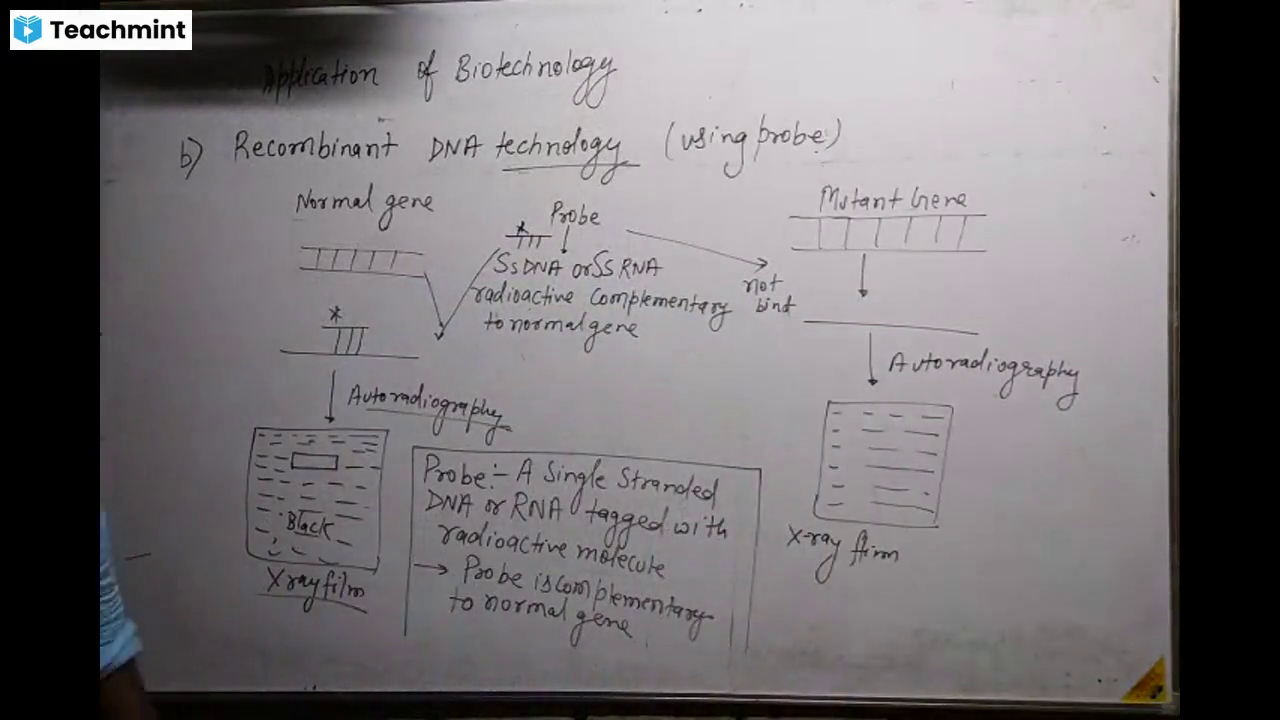 Teachmint
Application of Biotechnology
b) Recombinant DNA technology (using probe)
Normal gene
Probe
Mutant Gene
*
SsDNA or SS RNA
radioactive complementary
to normal gene
not
bind
*
Autoradiography
Autoradiography
Black
X ray film
Probe:- A Single Stranded
DNA or RNA tagged with
radioactive molecule
→ Probe is complementary
to normal gene
X-ray film